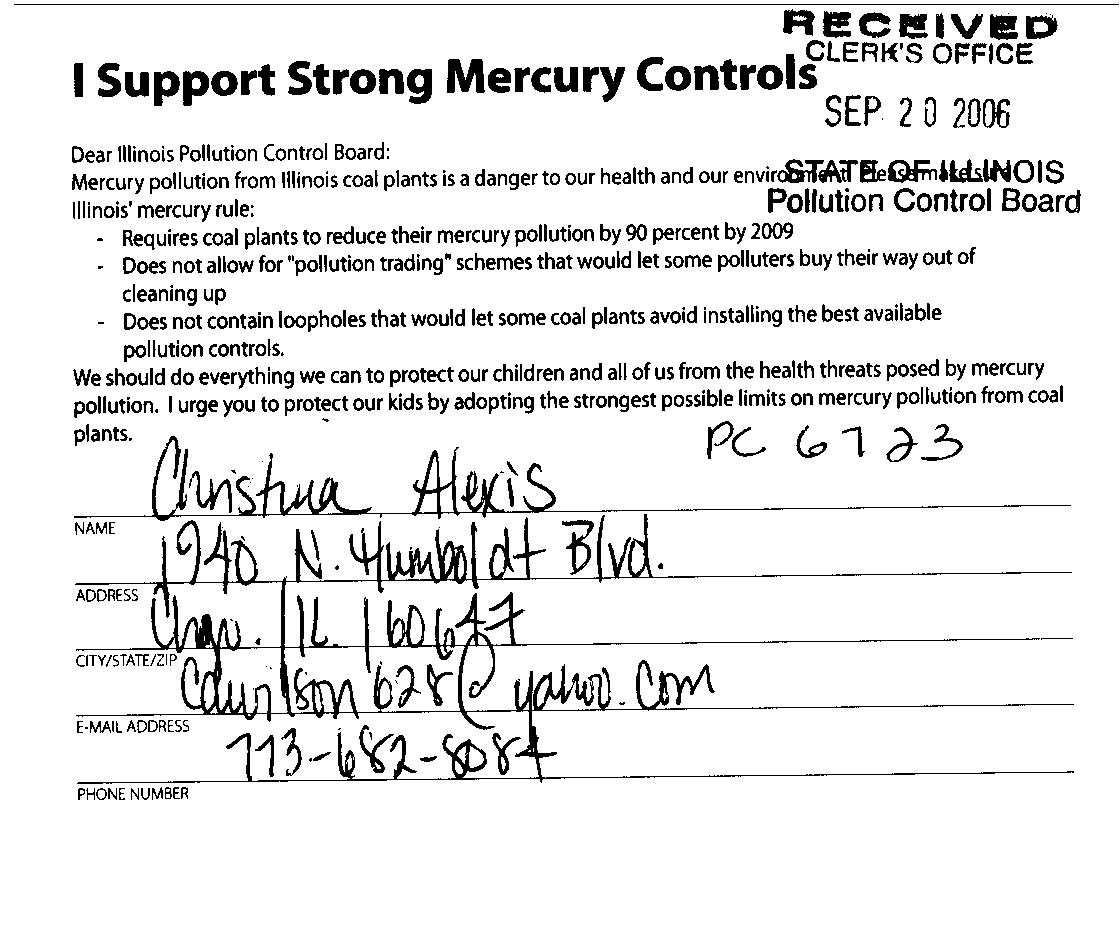 RECEIVED
CLERK'S OFFICE
I Support Strong Mercury Controls
SEP 20 2006
Dear Illinois Pollution Control Board:
Mercury pollution from Illinois coal plants is a danger to our health and our environment. Please make sure
STATE OF ILLINOIS
Illinois' mercury rule:
Pollution Control Board
- Requires coal plants to reduce their mercury pollution by 90 percent by 2009
- Does not allow for "pollution trading" schemes that would let some polluters buy their way out of
cleaning up
- Does not contain loopholes that would let some coal plants avoid installing the best available
pollution controls.
We should do everything we can to protect our children and all of us from the health threats posed by mercury
pollution. I urge you to protect our kids by adopting the strongest possible limits on mercury pollution from coal
plants.
PC 6723
Alexis
NAME
1940 N. Humboldt Blvd.
ADDRESS
Chgo. IL 60647
CITY/STATE/ZIP
E-MAIL ADDRESS
773-682-8084
PHONE NUMBER